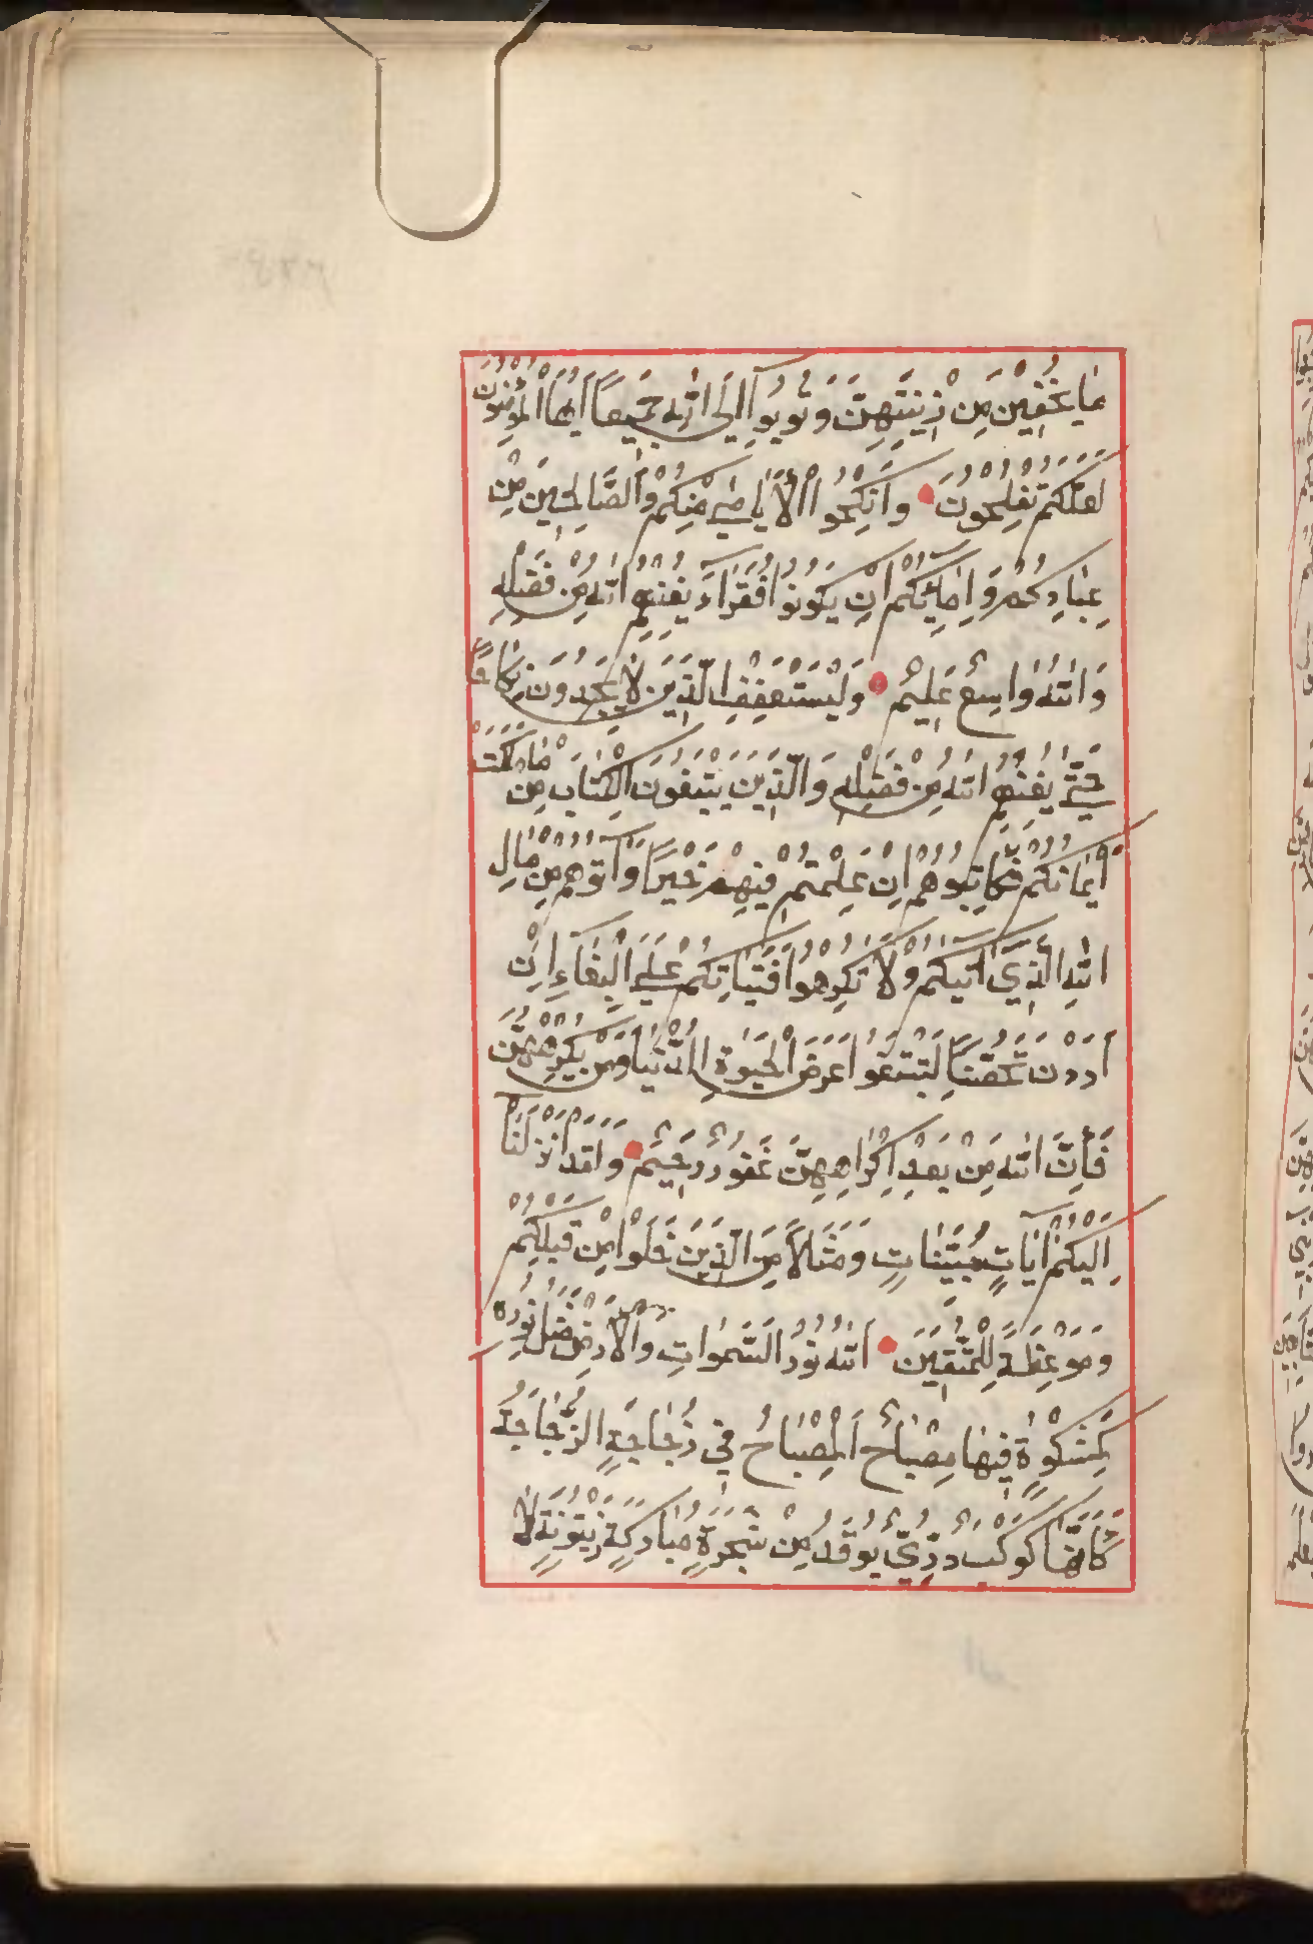 مَا يُخْفِينَ مِنْ زِينَتِهِنَّ وَتُوبُوآ اِلَى اللّٰهِ جَمِيعاً اَيُّهَا الْمُؤْمِنُونَ
لَعَلَّكُمْ تُفْلِحُونَ وَاَنْكِحُوا الْاَيَامٰى مِنْكُمْ وَالصَّالِحِينَ مِنْ
عِبَادِكُمْ وَاِمَآئِكُمْ اِنْ يَكُونُوا فُقَرَآءَ يُغْنِهِمُ اللّٰهُ مِنْ فَضْلِهِ
وَاللّٰهُ وَاسِعٌ عَلِيمٌ وَلْيَسْتَعْفِفِ الَّذِينَ لَا يَجِدُونَ نِكَاحًا
حَتّٰى يُغْنِيَهُمُ اللّٰهُ مِنْ فَضْلِهِ وَالَّذِينَ يَبْتَغُونَ الْكِتَابَ مِمَّا مَلَكَتْ
اَيْمَانُكُمْ فَكَاتِبُوهُمْ اِنْ عَلِمْتُمْ فِيهِمْ خَيْرًا وَآتُوهُمْ مِنْ مَالِ
اللّٰهِ الَّذِيٓ اٰتٰيكُمْ وَلَا تُكْرِهُوا فَتَيَاتِكُمْ عَلَى الْبِغَآءِ اِنْ
اَرَدْنَ تَحَصُّنًا لِتَبْتَغُوا عَرَضَ الْحَيٰوةِ الدُّنْيَا وَمَنْ يُكْرِهْهُنَّ
فَاِنَّ اللّٰهَ مِنْ بَعْدِ اِكْرَاهِهِنَّ غَفُورٌ رَحِيمٌ وَلَقَدْ اَنْزَلْنَآ
اِلَيْكُمْ اٰيَاتٍ مُبَيِّنَاتٍ وَمَثَلًا مِنَ الَّذِينَ خَلَوْا مِنْ قَبْلِكُمْ
وَمَوْعِظَةً لِلْمُتَّقِينَ اَللّٰهُ نُورُ السَّمٰوَاتِ وَالْاَرْضِ مَثَلُ نُورِهِ
كَمِشْكٰوةٍ فِيهَا مِصْبَاحٌ اَلْمِصْبَاحُ فِي زُجَاجَةٍ اَلزُّجَاجَةُ
كَاَنَّهَا كَوْكَبٌ دُرِّيٌّ يُوقَدُ مِنْ شَجَرَةٍ مُبَارَكَةٍ زَيْتُونَةٍ لَا